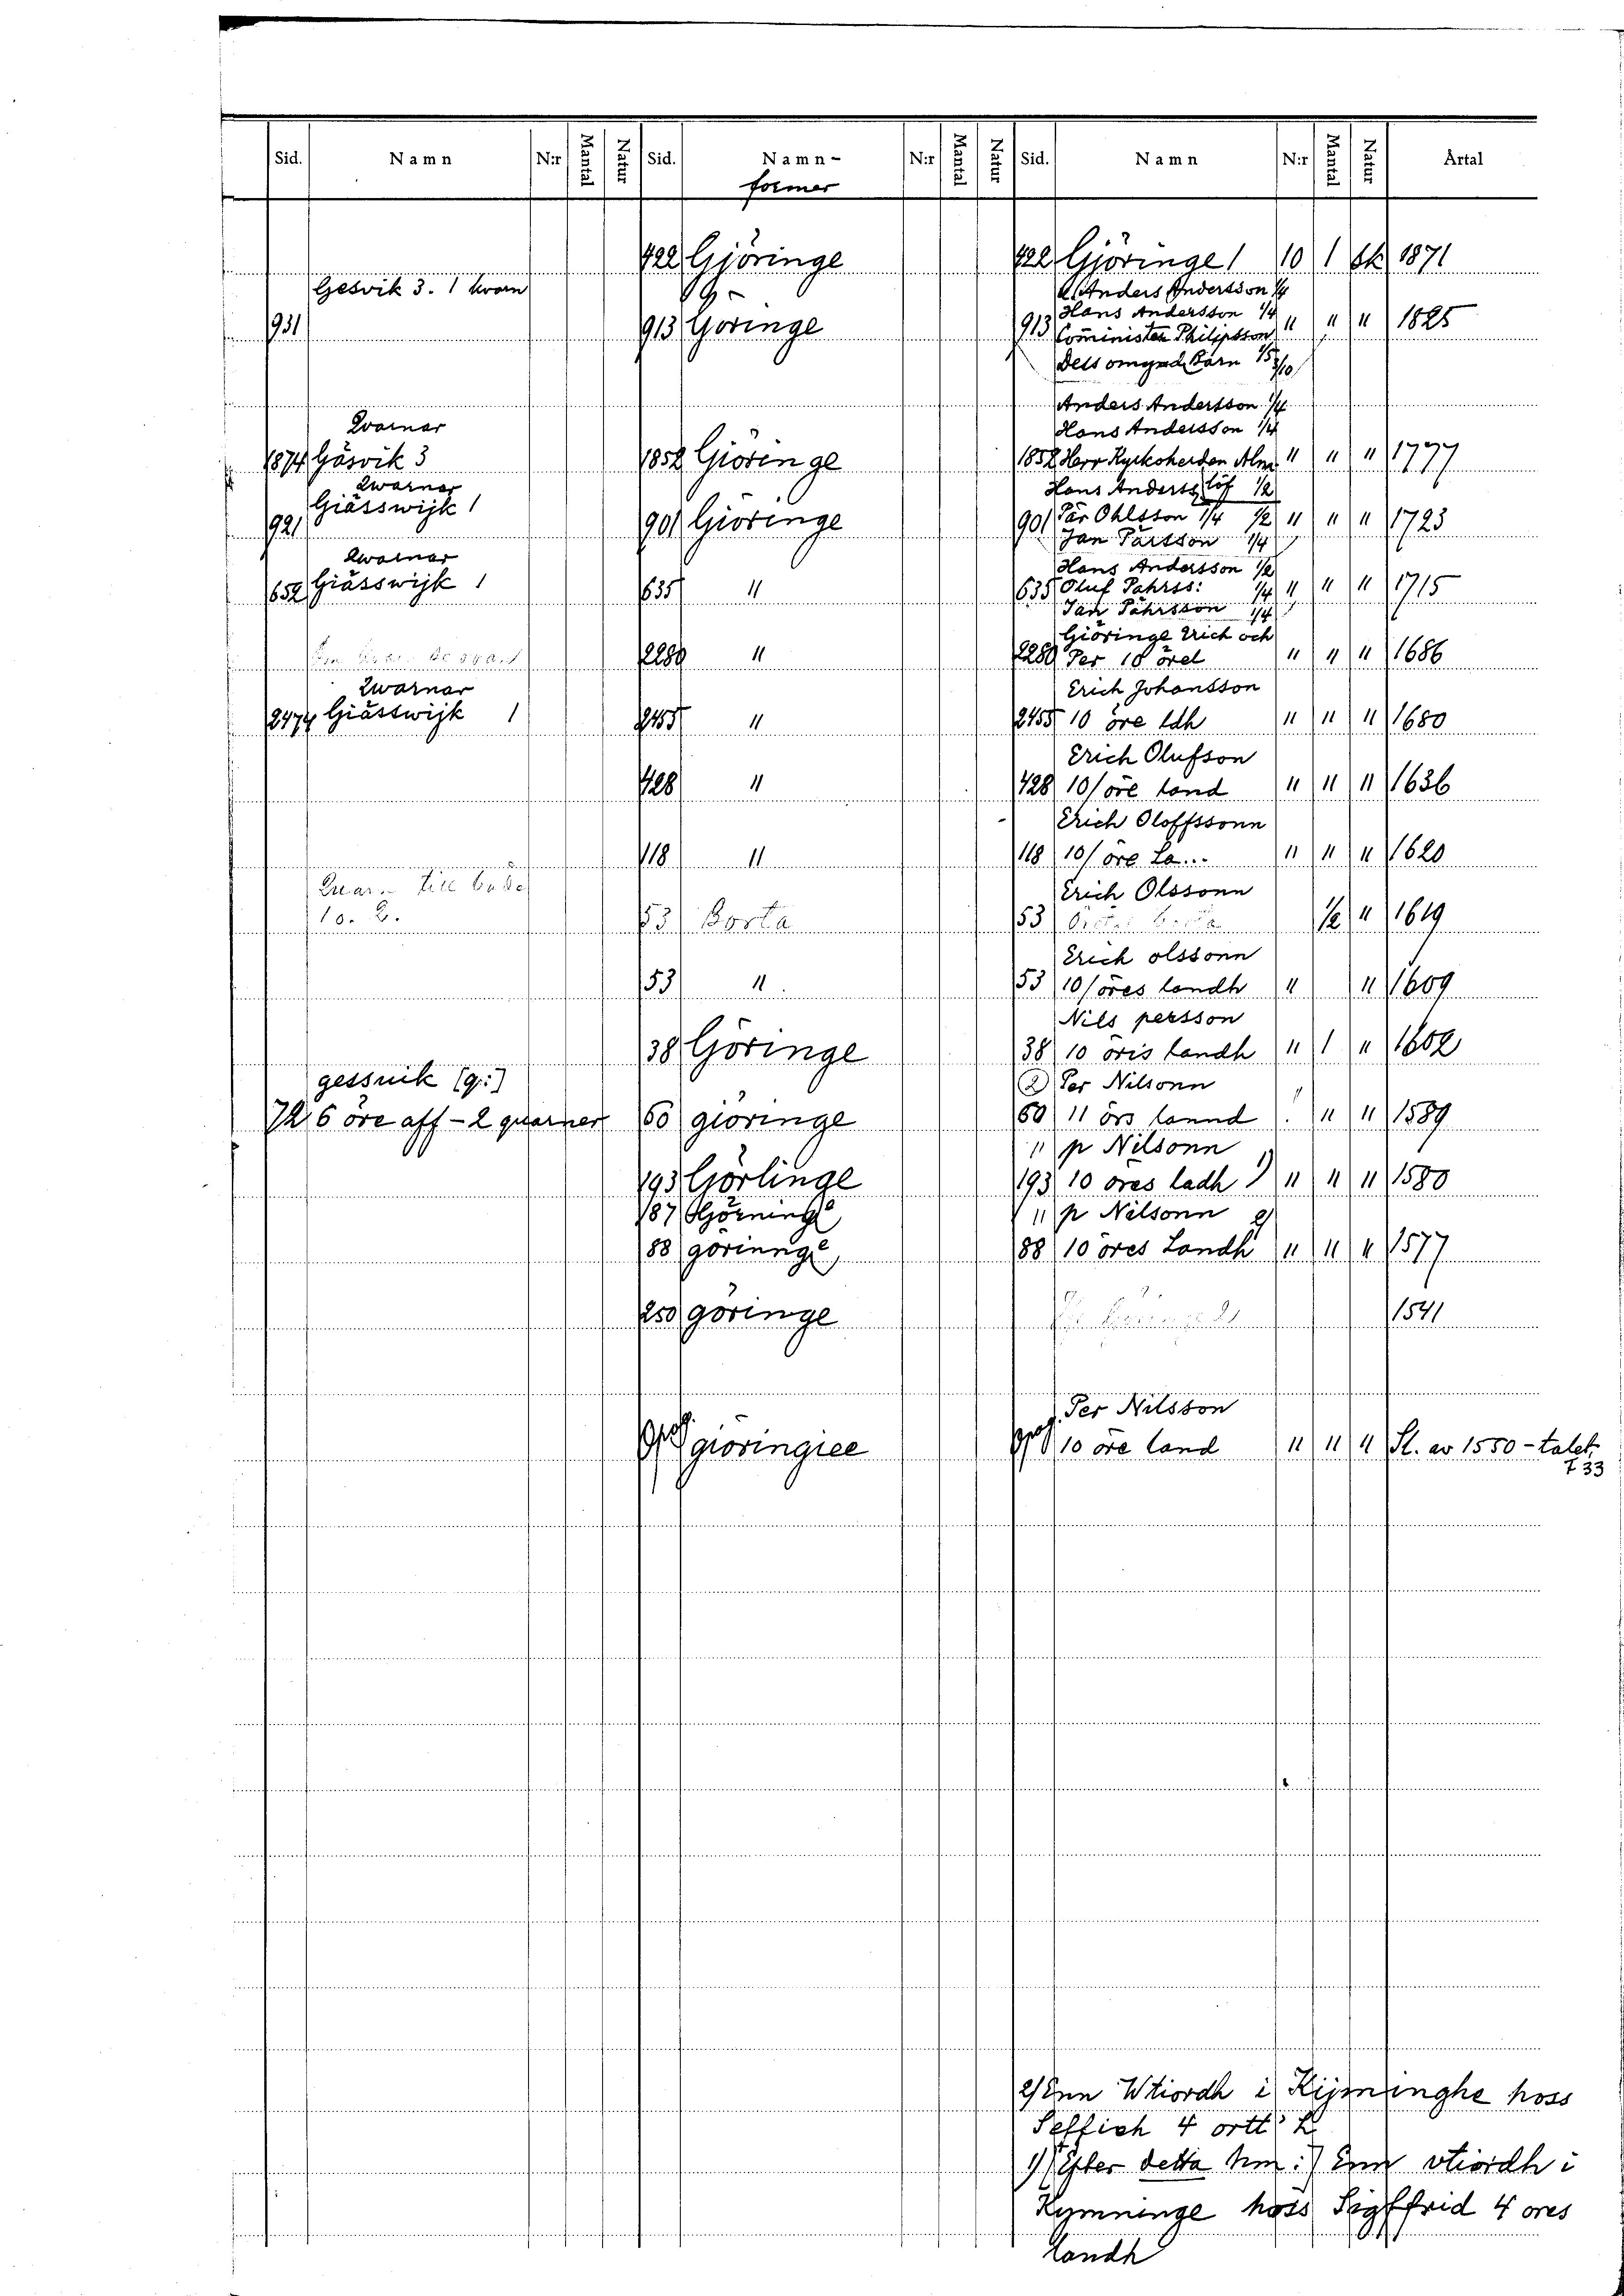 Sid. Namn N:r Mantal Natur Sid. Namn- N:r Mantal Natur Sid. Namn N:r Mantal Natur Årtal
former
422 Gjöringe 422 Gjöringe 1 10 1 Sk 1871
Gesvik 3. 1 kvarn
Anders Andersson 1/4
Hans Andersson 1/4
931 913 Göringe 913 Cominister Philipsson " " " 1825
Dess omynd. Barn
Anders Andersson 1/4
Qvarnar Hans Andersson 1/4
1874 Gäsvik 3 1852 Giöringe 1852 Herr Kyrkoherden Alm " " " 1777
Qwarnar Hans Anderss löf 1/2
921 Giässwijk 1 901 Giöringe 901 Pär Ohlsson 1/4 1/2 " " " 1723
Jan Pärsson 1/4
Qwarnar Hans Andersson 1/2
652 Giässwijk 1 635 " 635 Oluf Pahrss: 1/4 " " " 1715
Jan Pährsson 1/4
Giöringe Erich och
2280 " 2280 Per 10 örel " " " 1686
Qwarnar Erich Johansson
2474 Giässwijk 1 2455 " 2455 10 öre ldh " " " 1680
Erich Olufson
428 " 428 10/öre land " " " 1636
Erich Oloffssonn
118 " 118 10/öre La... " " " 1620
till Erich Olssonn
10. 2. 53 Borta 53 1/2 " 1619
Erich olssonn
53 " 53 10/öres landh " " 1609
Nils persson
38 Göringe 38 10 öris landh " 1 " 1602
gessuik [q:] Per Nilsonn
72 6 öre aff - 2 quarner 60 giöringe 60 11 örs lannd " " 1589
" p Nilsonn
193 Görlinge 193 10 öres ladh 1) " " " 1580
187 Görninge " p Nilsonn 2)
88 görinnge 88 10 öres Landh " " " 1577
250 göringe 1541
Per Nilsson
giöringiee 10 öre land " " " Sl. av 1550-talet
t 33
2) Enn Wtiordh i Kijminghe hoss
Seffich 4 ortt
1) (Efter detta hm:) Enn vtiördh i
Kymninge hoss Sigffrid 4 ores
landh